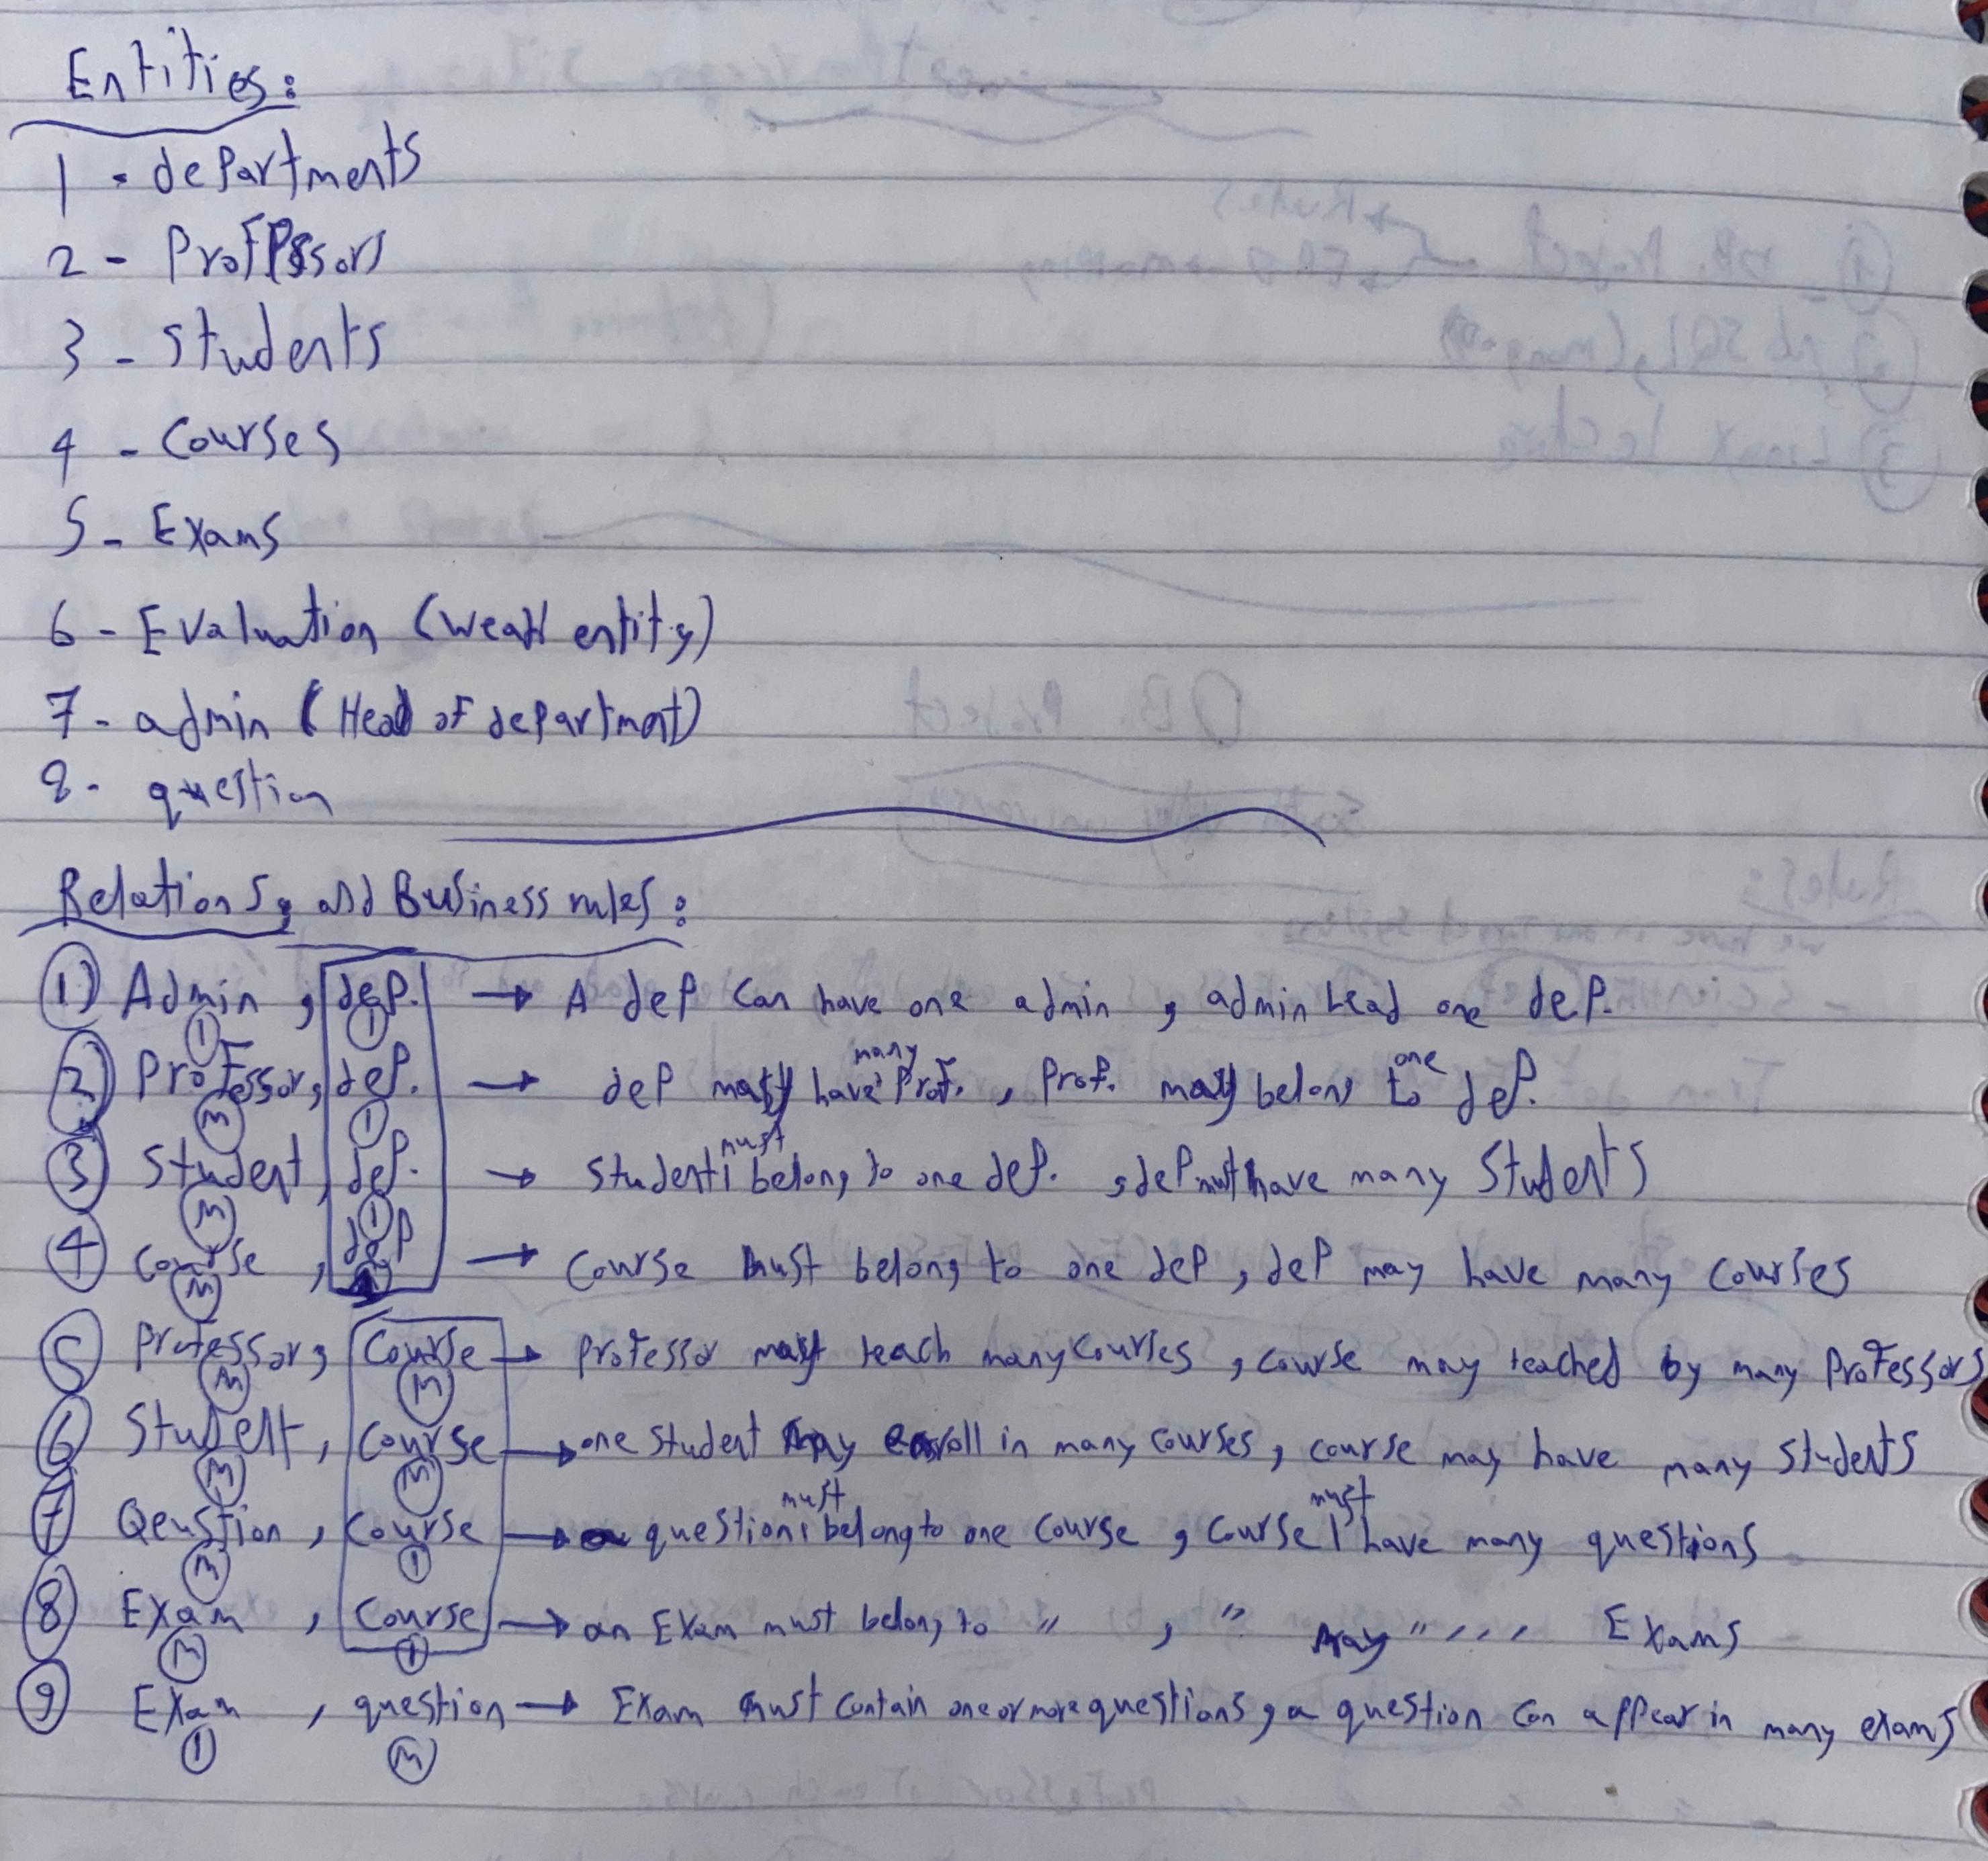 Entities:
1 - departments
2 - Professors
3 - Students
4 - Courses
5 - Exams
6 - Evaluation (weak entity)
7 - admin (Head of department)
8 - question
Relations, and Business rules:
① Admin, dep. → A dep can have one admin, admin Lead one dep.
① ①
② Professor, dep. → dep must have many Prof., Prof. must belong to one dep.
M ①
③ Student, dep. → student must belong to one dep. , dep must have many Students
M ①
④ Course, dep → Course must belong to one dep, dep may have many courses
M
⑤ Professor, Course → Professor must teach many courses, course may teached by many Professors
M M
⑥ Student, Course → one student may enroll in many courses, course may have many students
M M
⑦ Qeustion, Course → question must belong to one course, Course must have many questions
M ①
⑧ Exam, Course → an Exam must belong to " , " may " " " Exams
M ①
⑨ Exam, question → Exam must contain one or more questions, a question can appear in many exams
① M